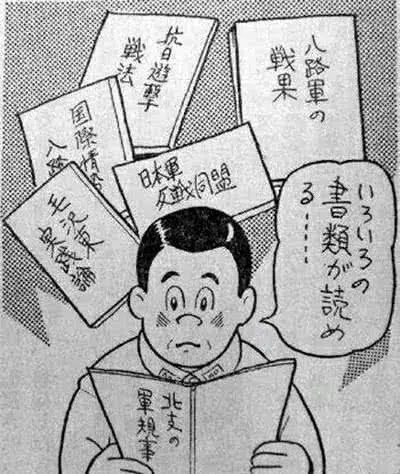 八路軍の
戦果
抗日遊撃
戦法
国際情勢
八路
日本軍
反戦同盟
毛沢東
実践論
いろいろの
書類が読め
る……
北支の
軍規事